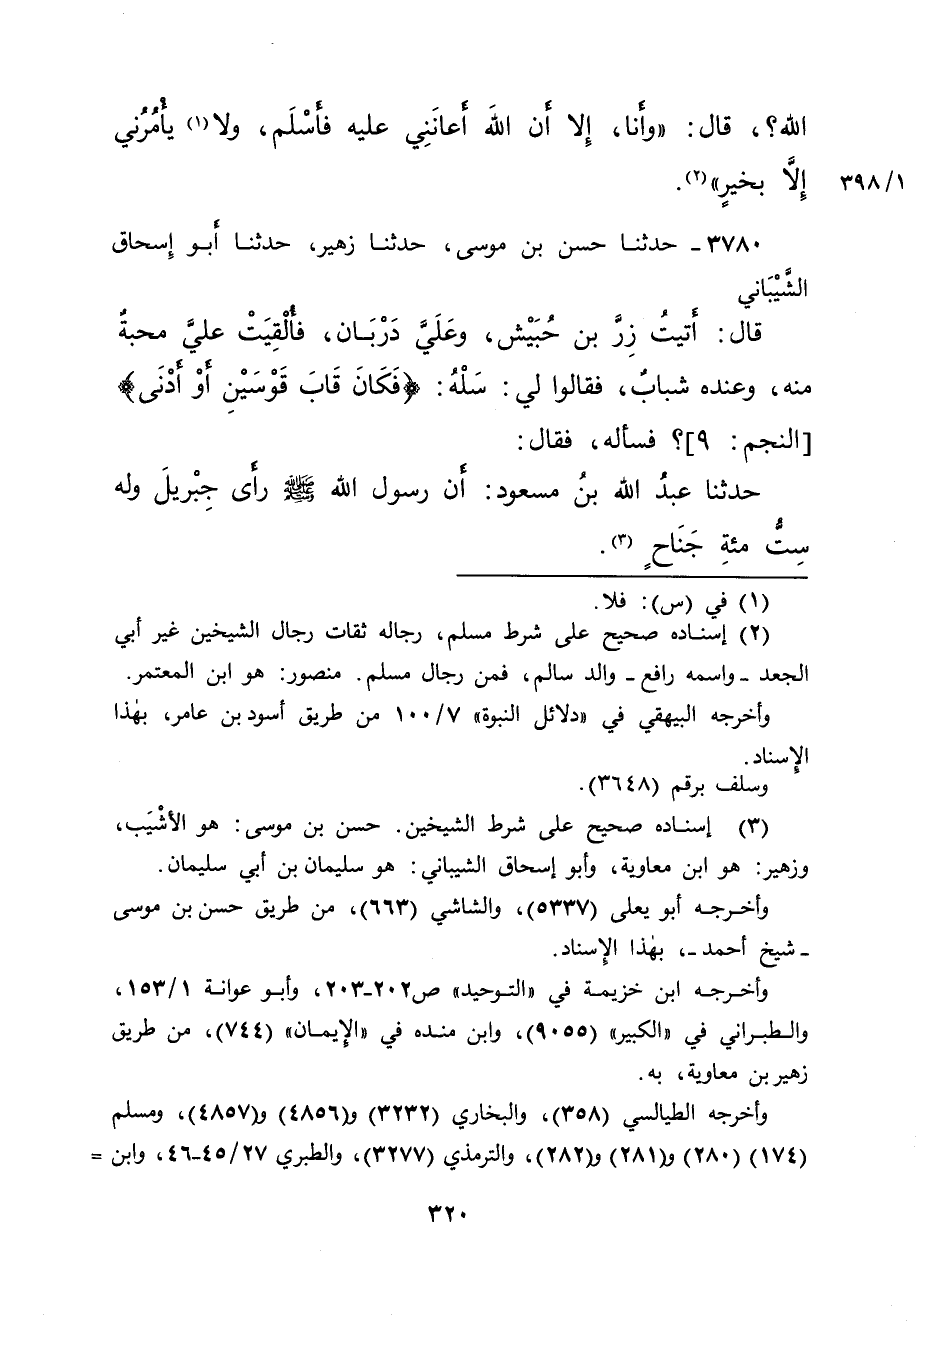 الله؟، قال: «وأَنا، إِلا أَن اللهَ أَعانَنِي عليه فأَسْلَم، ولا(١) يأْمُرُني
إِلَّا بخيرٍ»(٢).
٣٩٨/١
٣٧٨٠ ـ حدثنا حسن بن موسى، حدثنا زهير، حدثنا أَبو إسحاق
الشَّيْبَاني
قال: أَتيتُ زِرَّ بن حُبَيْش، وعَلَيَّ دَرْبَان، فأُلْقِيَتْ عليَّ محبةٌ
منه، وعنده شبابٌ، فقالوا لي: سَلْهُ: ﴿فَكَانَ قَابَ قَوْسَيْنِ أَوْ أَدْنَى﴾
[النجم: ٩]؟ فسأله، فقال:
حدثنا عبدُ الله بنُ مسعود: أَن رسول الله ﷺ رأَى جِبْريلَ وله
سِتُّ مئةِ جَنَاحٍ (٣).
(١) في (س): فلا.
(٢) إسناده صحيح على شرط مسلم، رجاله ثقات رجال الشيخين غير أبي
الجعد ـ واسمه رافع ـ والد سالم، فمن رجال مسلم. منصور: هو ابن المعتمر.
وأخرجه البيهقي في «دلائل النبوة» ١٠٠/٧ من طريق أسود بن عامر، بهٰذا
الإسناد.
وسلف برقم (٣٦٤٨).
(٣) إسناده صحيح على شرط الشيخين. حسن بن موسى: هو الأشْيَب،
وزهير: هو ابن معاوية، وأبو إسحاق الشيباني: هو سليمان بن أبي سليمان.
وأخرجه أبو يعلى (٥٣٣٧)، والشاشي (٦٦٣)، من طريق حسن بن موسى
ـ شيخ أحمد ـ، بهٰذا الإسناد.
وأخرجه ابن خزيمة في «التوحيد» ص٢٠٢ـ٢٠٣، وأبو عوانة ١٥٣/١،
والطبراني في «الكبير» (٩٠٥٥)، وابن منده في «الإيمان» (٧٤٤)، من طريق
زهير بن معاوية، به.
وأخرجه الطيالسي (٣٥٨)، والبخاري (٣٢٣٢) و(٤٨٥٦) و(٤٨٥٧)، ومسلم
(١٧٤) (٢٨٠) و(٢٨١) و(٢٨٢)، والترمذي (٣٢٧٧)، والطبري ٤٥/٢٧ـ٤٦، وابن =
٣٢٠